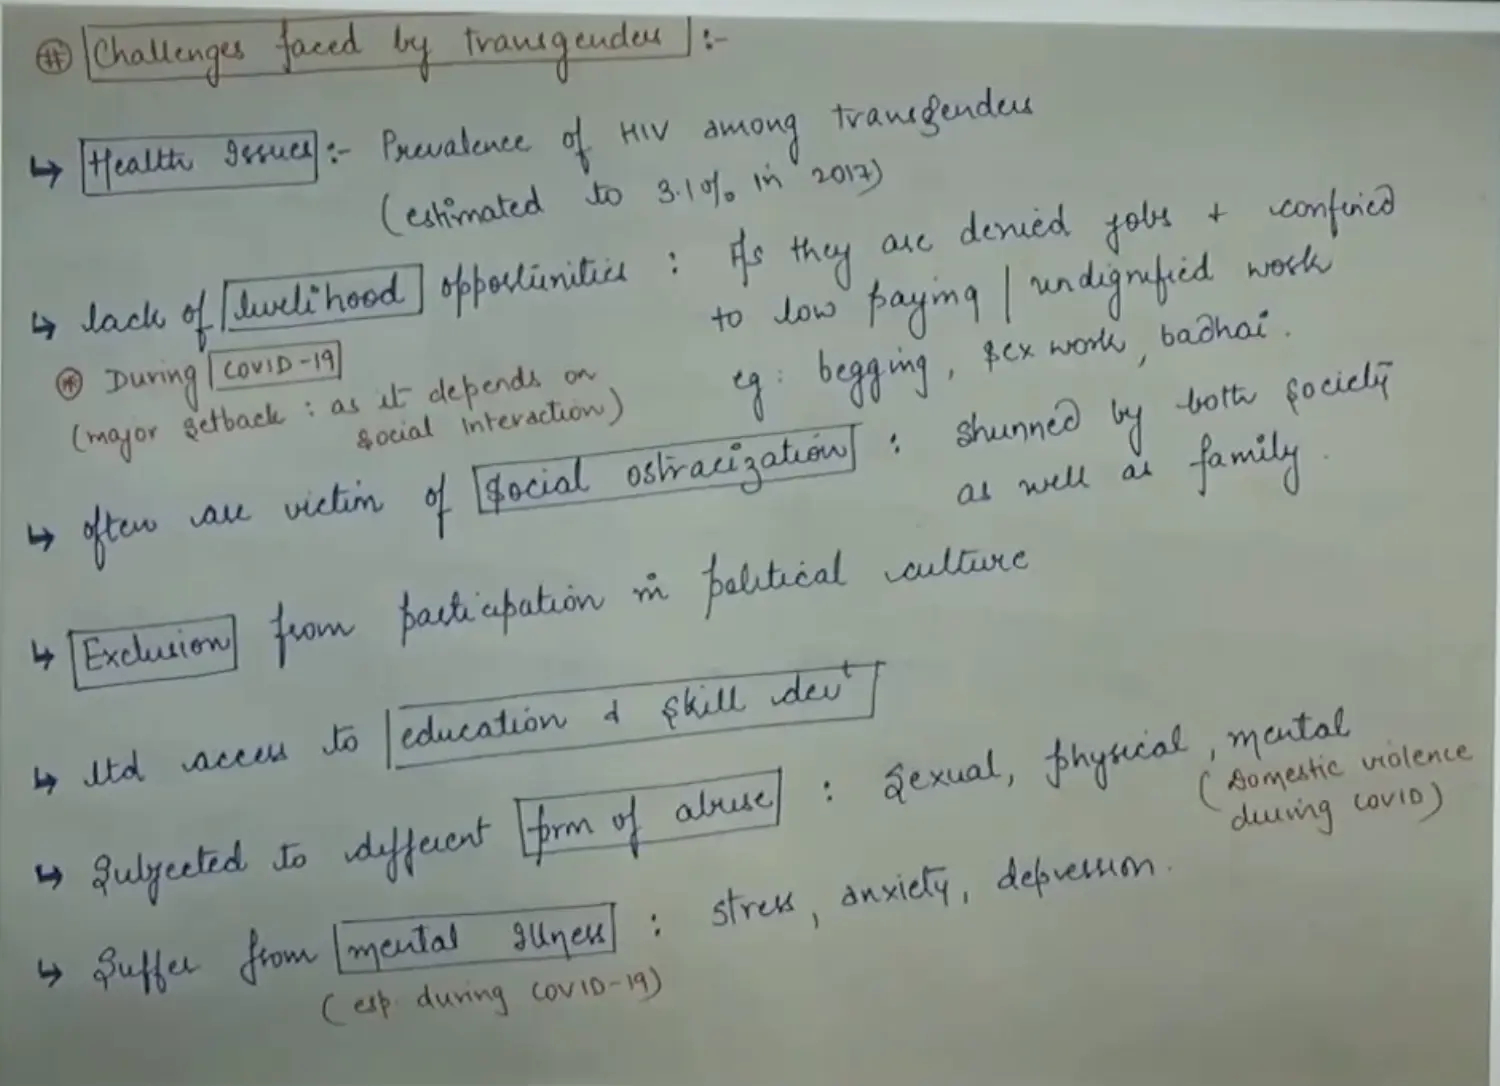 # Challenges faced by transgenders :-
↳ Health Issues :- Prevalence of HIV among transgenders
(estimated to 3.1% in 2017)
↳ lack of livelihood opportunities : As they are denied jobs + confined
to low paying / undignified work
eg : begging, sex work, badhai.
* During COVID-19
(major setback : as it depends on
social interaction)
↳ often are victim of social ostracization : shunned by both society
as well as family.
↳ Exclusion from participation in political culture
↳ ltd access to education & skill devt
↳ Subjected to different form of abuse : Sexual, physical, mental
(Domestic violence
during COVID)
↳ Suffer from mental illness : stress, anxiety, depression.
(esp. during COVID-19)